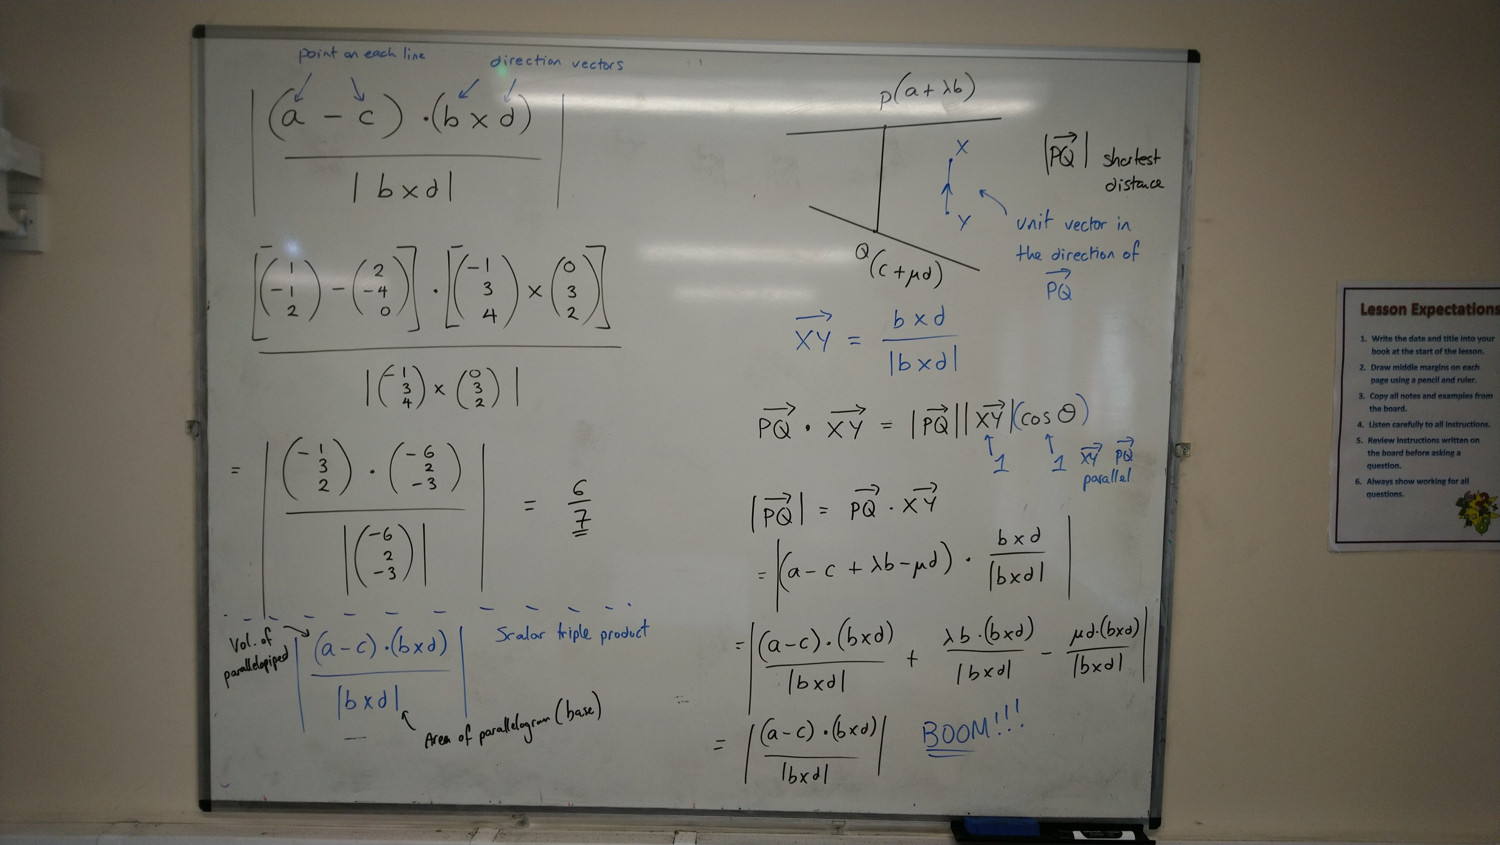 point on each line
direction vectors
|(a - c) · (b x d)|
| b x d |
[(1 -1 2) - (2 -4 0)] · [(-1 3 4) x (0 3 2)]
|(-1 3 4) x (0 3 2)|
= |(-1 3 2) · (-6 2 -3)| = 6/7
|(-6 2 -3)|
Vol. of parallelopiped
|(a-c)·(b x d)|
|b x d|
Scalar triple product
Area of parallelogram (base)
P(a + λb)
Q(c + μd)
X
Y
|PQ| shortest
distance
unit vector in
the direction of
PQ
XY = b x d
|b x d|
PQ · XY = |PQ||XY|(cos θ)
1 1 XY PQ
parallel
|PQ| = PQ · XY
= |(a - c + λb - μd) · b x d|
|b x d|
= |(a-c)·(b x d) + λb·(b x d) - μd·(b x d)|
|b x d| |b x d| |b x d|
= |(a-c)·(b x d)|
|b x d|
BOOM!!!
Lesson Expectations
1. Write the date and title into your
book at the start of the lesson.
2. Draw middle margins on each
page using a pencil and ruler.
3. Copy all notes and examples from
the board.
4. Listen carefully to all instructions.
5. Review instructions written on
the board before asking a
question.
6. Always show working for all
questions.